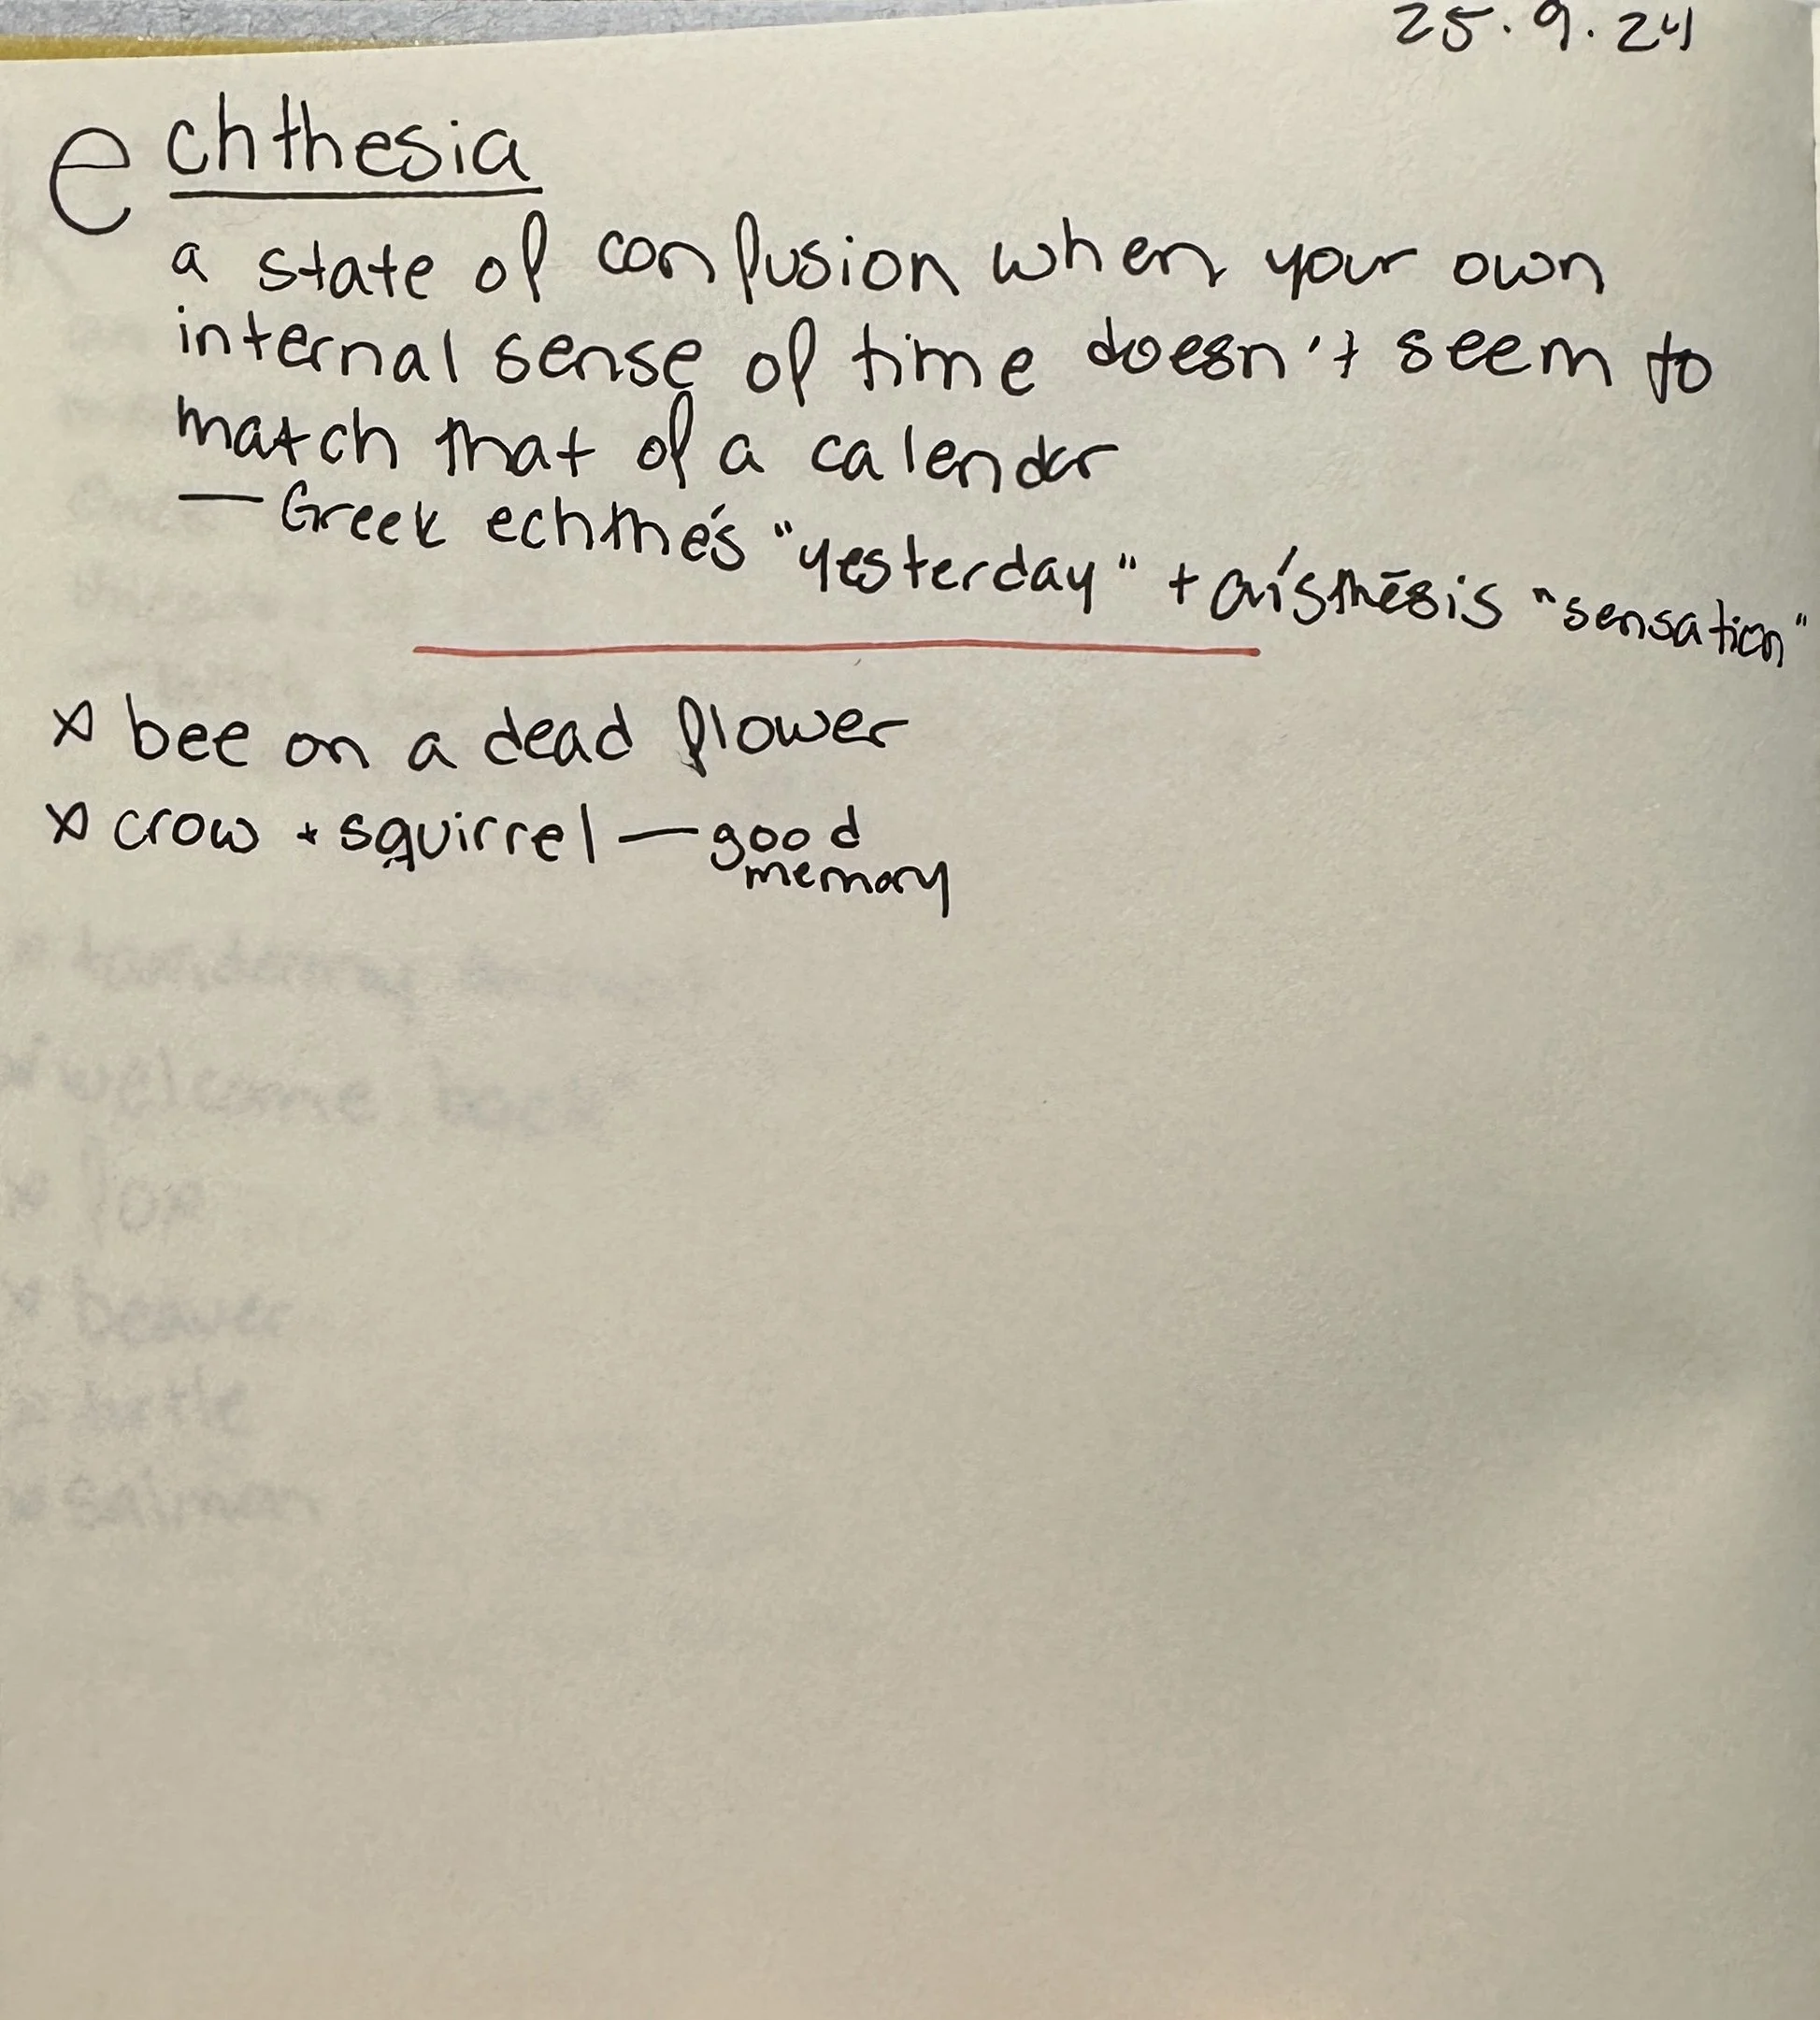 25.9.24
echthesia
a state of confusion when your own
internal sense of time doesn't seem to
match that of a calendar
— Greek echthés "yesterday" + aísthēsis "sensation"
x bee on a dead flower
x crow + squirrel — good
memory
welcome back
fox
beaver
turtle
salmon